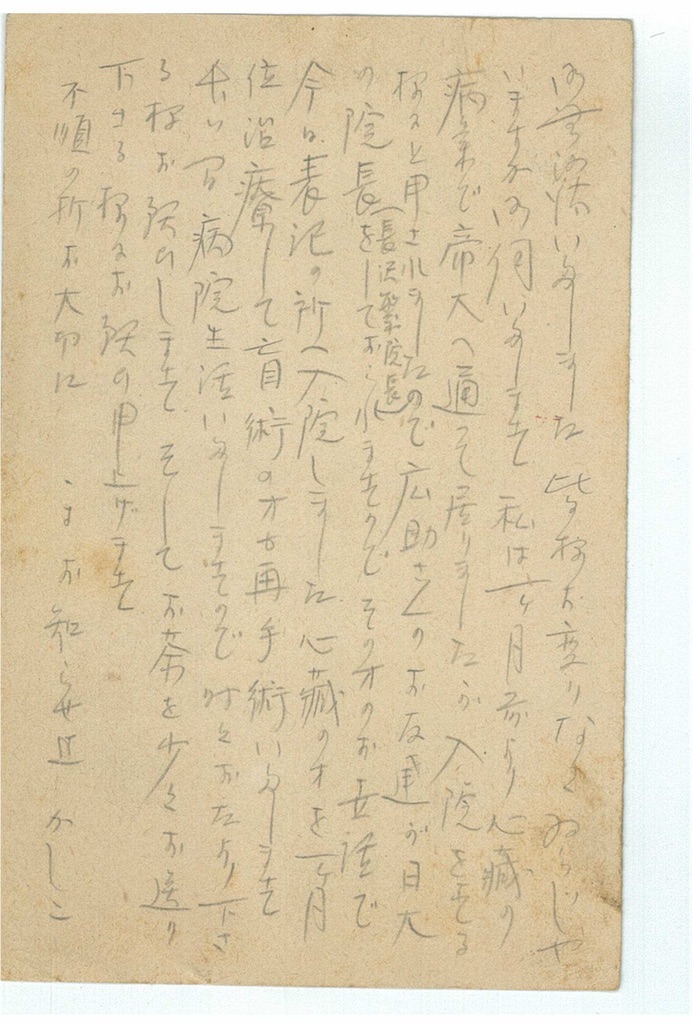 御無沙汰いたしました 皆様お変りなくゐらしや
いますか御伺いたします 私は一ヶ月前より心臓の
病気で帝大へ通つて居りましたが 入院をする
様にと申されましたので広助さんのお友達が日大
の院長をしておられますのでその方のお世話で
(長沢 院長)
今日表記の所へ入院しました 心臓の方を一ヶ月
位治療して盲 術の方を再手術いたします
長い間病院生活いたしますので 時々おたより下さ
る様お願ひします そして お茶を少々お送り
下さる様にお願ひ申上げます
不順の折お大切に
お知らせ迄 かしこ